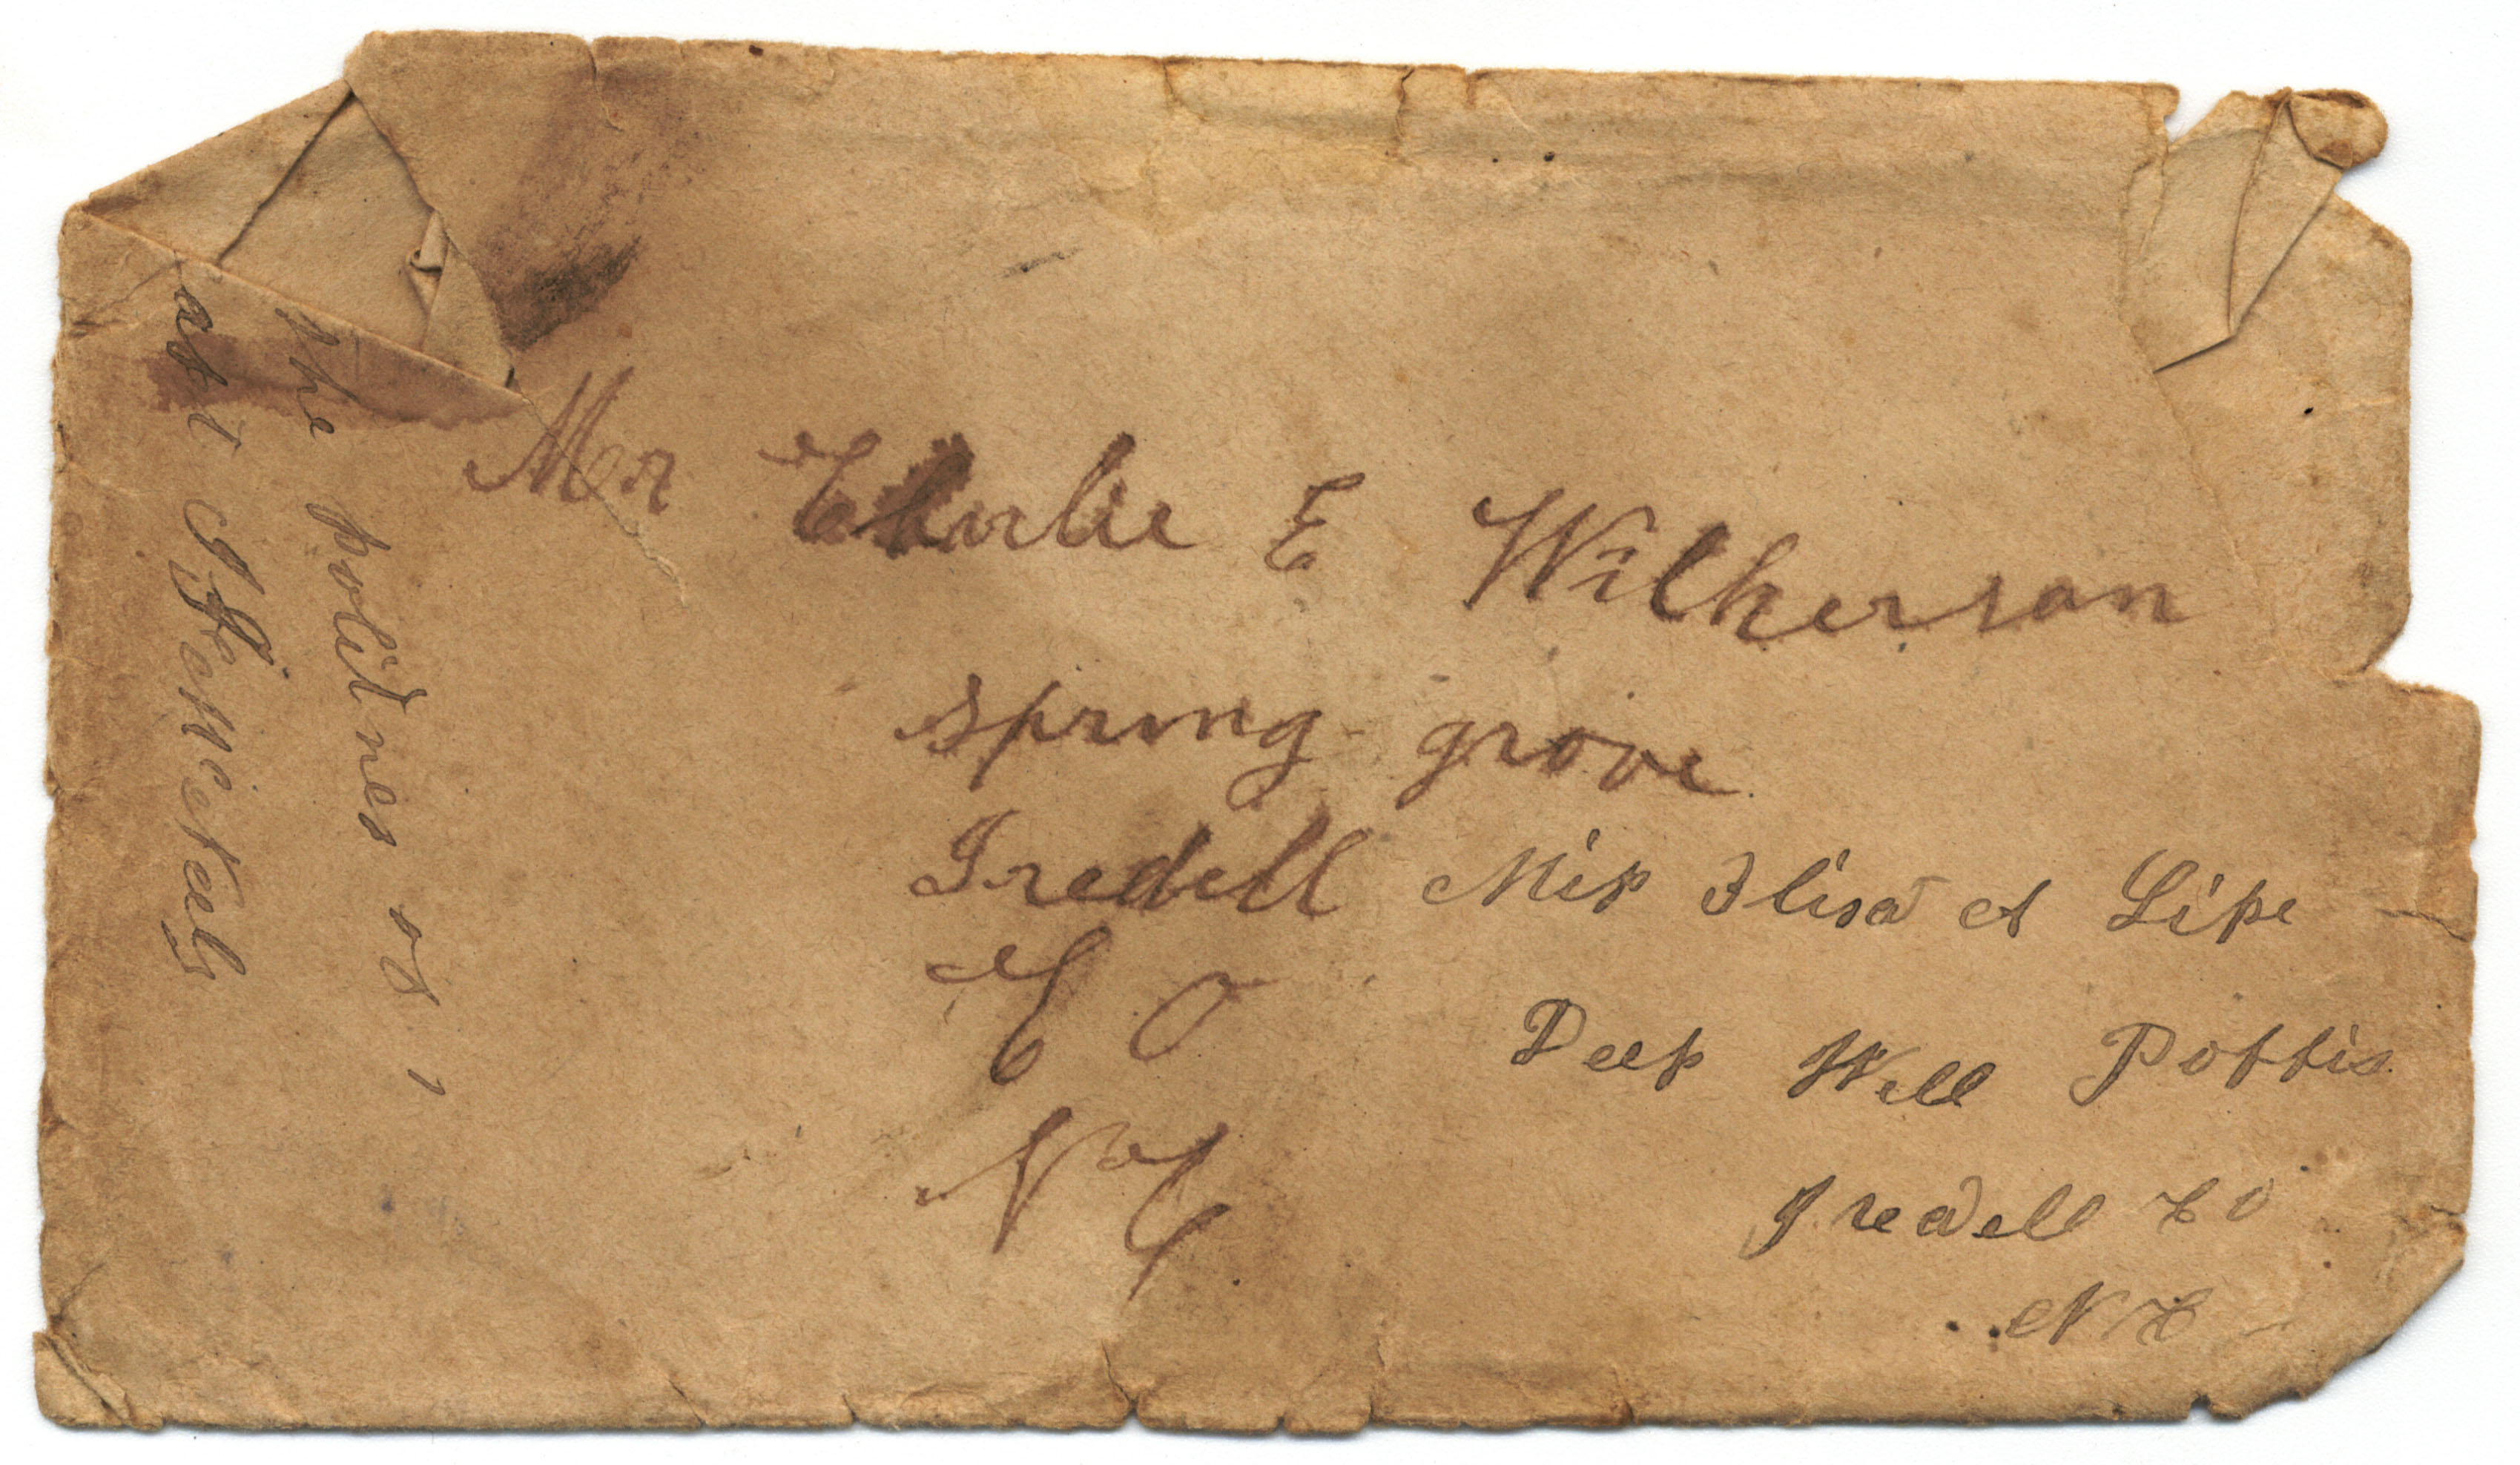 Mr Charlie E Wilkerson
spring grove
Iredell
C O
N C
Miss Elisa A Lipe
Deep Well Pottis
Iredell Co
N C
the polidnes of
at